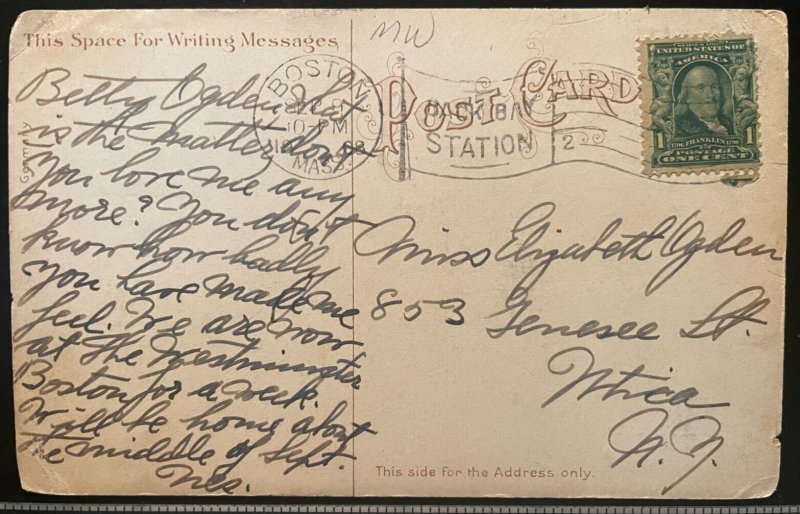 This Space For Writing Messages
Betty Ogden what
is the matter don't
you love me any
more? You don't
know how badly
you have made me
feel. We are now
at the Westminster
Boston for a week.
Will be home about
the middle of Sept.
Germany
MW
BOSTON
MASS.
BACK BAY
STATION
2
POST CARD
SERIES 1902
UNITED STATES OF
1
FRANKLIN
POSTAGE
ONE CENT
Miss Elizabeth Ogden
853 Genesee St.
Utica
N.Y.
This side for the Address only.